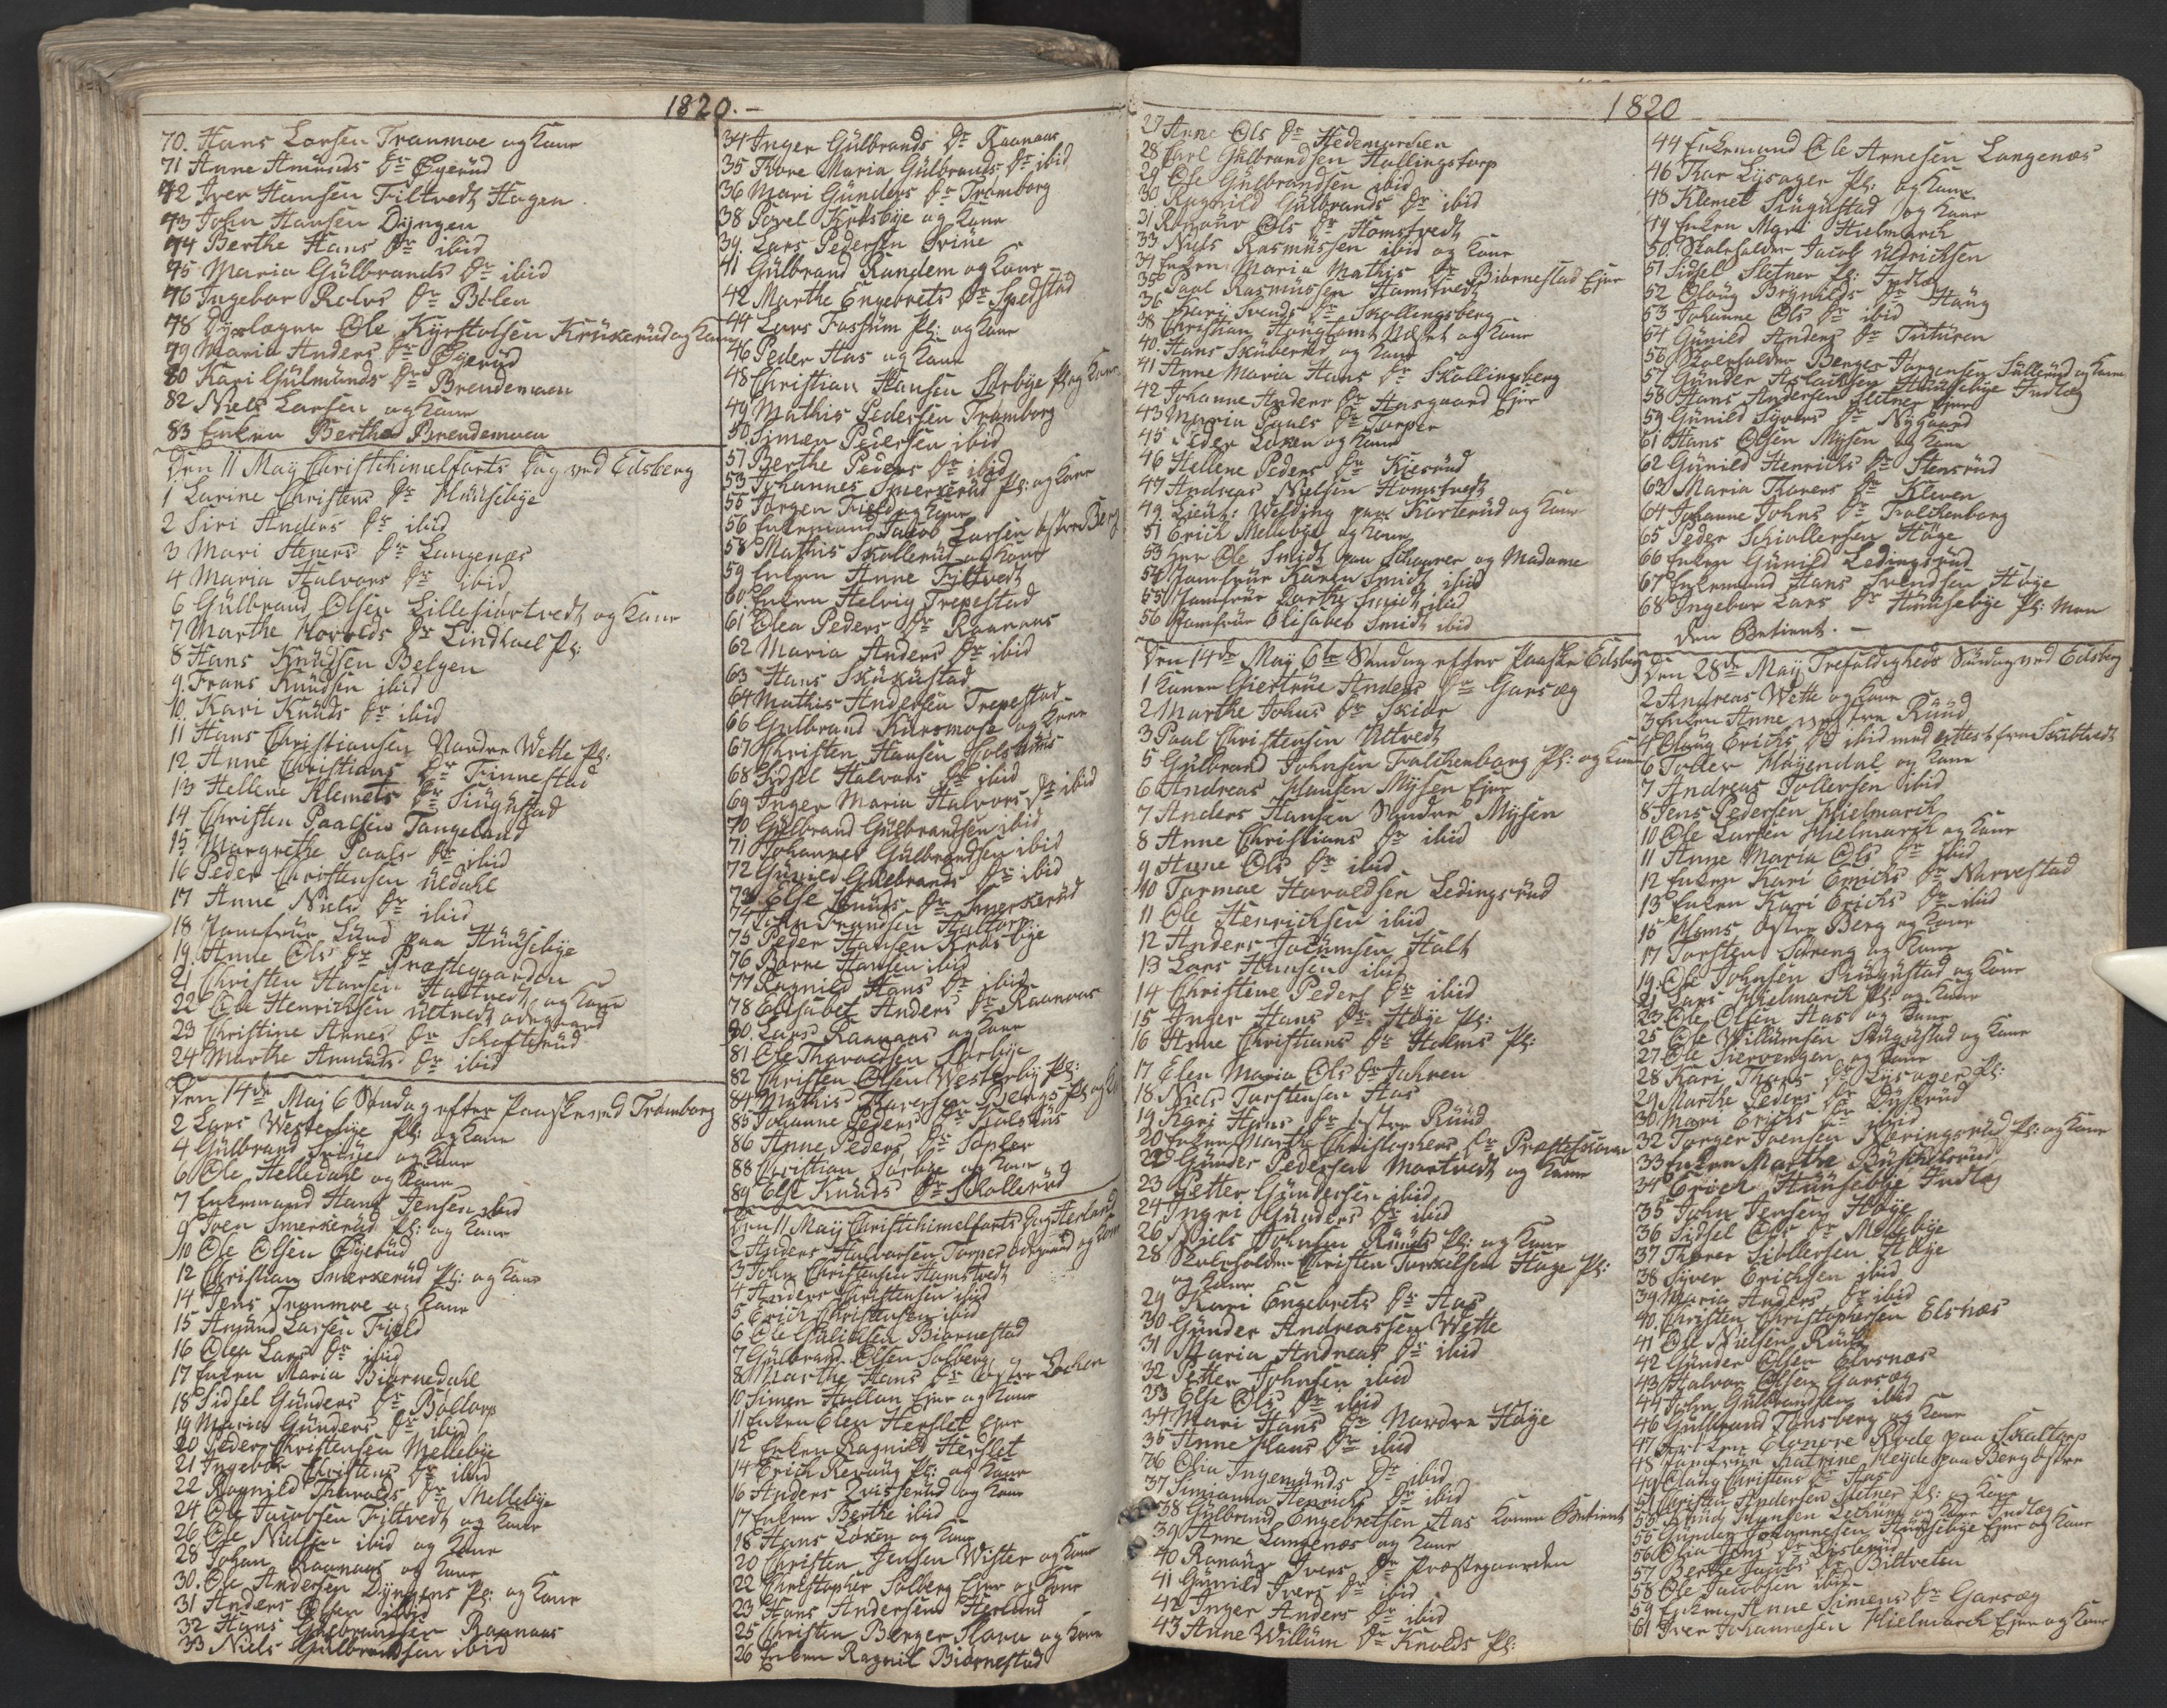 1820.-
70. Hans Larsen Tranmoe og Kone
71 Anne Amunds Dr Øgerüd
72 Iver Hansen Filtvedt Hagen
73 John Hansen Dÿngen
74 Berthe Hans Dr ibid
75 Maria Gülbrands Dr ibid
76 Ingebor Rolvs Dr Bølen
78 Ole Krükerüd og Kone
79 Maria Anders Dr Øgerüd
80 Kari Gülmünds Dr Brendemoen
82 Niels Larsen og Kone
83 Enken Berthe Brendemoen
Den 11 Maÿ Christihimelfarts Dag ved Edsberg
1 Larine Christens Dr Hüüsebÿe
2 Siri Anders Dr ibid
3 Mari Steners Dr Langenæs
4 Maria Halvors Dr ibid
6 Gülbrand Olsen Lillesiortvedt og Kone
7 Marthe Haralds Dr Lindhael Pl:
8 Hans Knüdsen Belgen
9. Frans Knüdsen ibid
10. Kari Knüds Dr ibid
11 Hans Christiansen Nordre Wette Pl:
12. Anne Christians Dr Finnestad
13 Hellene Klemets Dr Siügüstad
14 Christen Paalsen Tangeland
15 Margrethe Paals Dr ibid
16 Peder Christensen Üldahl
17 Anne Niels Dr ibid
18 Jomfrüe Lünd paa Hüüsebÿe
19. Anne Ols Dr Præstegaarden
21 Christen Hansen Hastvedt og Kone
22 Ole Henrichsen Ültvedt ødegaard
23 Christine Arnes Dr Schofterüd
24 Marthe Amunds Dr ibid
Den 14de Maj 6 Søndag efter Paaske ved Trømborg
2 Lars Westerbÿe Pl: og Kone
4 Gülbrand Friüe og Kone
6 Ole Helledahl og Kone
7 Enkemand Hans Jensen ibid
9 Iven Smerkerüd Pl: og Kone
10 Ole Olsen Øÿerüd
12 Christian Smerkerüd Pl: og Kone
14 Jens Tranmoe og Kone
15 Amünd Larsen Field
16 Olea Lars Dr ibid
17 Enken Maria Biørnedahl
18 Sidsel Günders Dr Bøltorp
19 Maria Günders Dr ibid
20 Peder Christensen Mellebÿe
21 Ingebor Christens Dr ibid
22 Ragnild Thorvalds Dr Mellebÿe
24 Ole Jacobsen Filtvedt og Kone
26 Ole Nielsen ibid og Kone
28 Johan Raanaas og Kone
30. Ole Andersen Dÿngens Pl: og Kone
31 Anders Olsen ibid
32 Hans Gülbrandsen Raanaas
33 Niels Gülbrandsen ibid
34 Inger Gülbrands Dr Raanaas
35 Thore Maria Gülbrands Dr ibid
36 Mari Günders Dr Trømborg
38 Povel Krosbÿe og Kone
39. Lars Pedersen Friüe
41 Gülbrand Randem og Kone
42 Marthe Engebrets Dr Spedstad
44 Lars Fossüm Pl: og Kone
46 Peder Aas og Kone
48 Christian Hansen Sørbÿe Pl og Kone
49 Mathis Pedersen Trømborg
50. Simen Pedersen ibid
51 Berthe Peders Dr ibid
53 Johannes Smerkerüd Pl: og Kone
55 Jørgen Field og Kone
56 Enkemand Jacob Larsen østre Berg
58 Mathis Skollerüd og Kone
59 Enken Anne Filtvedt
60 Enken Helvig Trepestad
61 Olea Peders Dr Raanaas
62 Maria Anders Dr ibid
63 Hans Skükustad
64 Mathis Andersen Trepestad
66 Gulbrand Kürsmose og Kone
67 Christen Hansen Holshuus
68 Sidsel Halvors Dr ibid
69 Inger Maria Halvors Dr ibid
70 Gülbrand Gülbrandsen ibid
71 Johannes Gülbrandsen ibid
72 Günild Gülbrands Dr ibid
73 Else Knüds Dr Smerkerüd
74 John Frandsen Haltorp
75 Peder Hansen Krosbÿe
76 Børre Hansen ibid
77 Ragnild Hans Dr ibid
78 Elisabet Anders Dr Raanaas
80. Lars Raanaas og Kone
81 Ole Thorvaldsen Sørbÿe
82 Christen Olsen Westerbÿ Pl:
84 Mathis Thoresen Bergs Pl og Ko
85 Johanne Peders Dr
86 Anne Peders Dr Sopler
88 Christian Sørbÿe og Kone
89 Else Knüds Dr Skollerüd
Den 11 Maÿ Christihimelfarts Dag Herland
2 Anders Halvorsen Torper ødegaard og Kone
3 John Christensen Hamstvedt
4 Anders Christensen ibid
5 Erich Christensen ibid
6 Ole Gülichsen Biørnestad
7 Gülbrand Olsen Solberg
8 Marthe Hans Dr østre Løchen
10 Simen Hallan Ejer og Kone
11 Enken Elen Herslet Ejer
12 Enken Ragnild Herslet
14 Erich Reraüg Pl: og Kone
16 Anders Qvisserüd og Kone
17 Enken Berthe ibid
18 Hans Løken og Kone
20 Christen Jensen Wister og Kone
22 Christopher Solberg Ejer og Kone
23 Hans Andersen Herland
25 Christen Berger Hara og Kone
26 Enken Ragnil Biørnestad
1820
27 Anne Ols Dr Hedemarken
28 Carl Gülbrandsen Hallingstorp
29 Ole Gülbrandsen ibid
30. Ragnild Gülbrands Dr ibid
31 Ranaür Ols Dr Homstvedt
33 Niels Rasmüssen ibid og Kone
34 Enken Maria Mathis Dr Biørnestad Ejer
35 Paal Rasmüssen Hamstvedt
36 Kari Svends Dr Skollingsberg
38 Christian Haüglamt Næset og Kone
40. Hans Sküberød og Kone
41 Anne Maria Hans Dr Skollingsberg
42 Johanne Anders Dr Aasgaard Ejer
43 Maria Paals Dr Torper
45 Peder Løken og Kone
46 Hellene Peders Dr Kierüüd
47 Andreas Nielsen Homstvedt
49 Lieüt: Welding paa Karterüd og Kone
51 Erich Mellebÿe og Kone
53 Herr Ole Smidt paa Schaarer og Madame
54 Jomfrüe Karen Smidt ibid
55 Jomfrüe Dorthe Smidt ibid
56 Jomfrüe Elisabeb Smidt ibid
Den 14de Maÿ 6te Søndag efter Paaske Edsberg
1 Konen Giertrüe Anders Dr Garsæg
2 Marthe Johns Dr Skiør
3 Paal Christensen Ültvedt
5 Gülbrand Johnsen Falchenborg Pl: og Kone
6 Andreas Hansen Mÿsen Ejer
7 Anders Hansen Søndre Mÿsen
8 Anne Christians Dr ibid
9 Anne Ols Dr ibid
10 Tormoe Haraldsen Ledingsrüd
11 Ole Henrichsen ibid
12 Anders Jocümsen Holt
13 Lars Hansen ibid
14 Christine Peders Dr ibid
15 Inger Hans Dr Høÿe Pl:
16 Anne Christians Dr Holms Pl:
17 Elen Maria Ols Dr Jahren
18 Niels Torstensen Aas
19 Kari Hans Dr østre Rüüd
20 Enken Marthe Christophers Dr Præsteskoven
22 Günder Pedersen Mortvedt og Kone
23 Petter Gündersen ibid
24 Ingri Günders Dr ibid
26 Niels Johnsen Rüüds Pl: og Kone
28 Skoleholder Christen Torkelsen Hage Pl:
og Kone
29 Kari Engebrets Dr Aas
30 Günder Andreassen Wette
31 Maria Andreas Dr ibid
32 Petter Johnsen ibid
33 Else Ols Dr ibid
34 Mari Hans Dr Nordre Høÿe
35 Anne Hans Dr ibid
36 Olia Ingemünds Dr ibid
37 Simianna Henrichs Dr ibid
38 Gülbrand Engebretsen Aas Konen Betient
39 Arne Langenæs og Kone
40 Ranaür Ivers Dr Præstegaarden
41 Günild Ivers Dr ibid
42 Inger Anders Dr ibid
43 Anne Willüm Dr Knolds Pl:
44 Enkemand Ole Arnesen Langenæs
46 Thor Lÿsager Pl: og Kone
48 Klemet Siügüstad og Kone
49 Enken Mari Hielmarck
50. Skoleholder Jacob Üldrichsen
51 Sidsel Sletner Pl: Indlæg
52 Olaüg Brÿnilds Dr Haüg
53 Johanne Ols Dr ibid
54 Günild Anders Dr Tütüren
56 Skoeholder Berger Jørgensen Süllerüd og Kone
57 Günder Aslachsen Hüüsebÿe Indlæg
58 Hans Andersen Sletner Ejer
59 Günild Sÿvers Dr Nÿgaard
61 Hans Olsen Mÿsen og Kone
62 Günild Henrichs Dr Stensrüd
63 Maria Thorers Dr Kleven
64 Johanne Johns Dr Falchenborg
65 Peder Schiøllersen Høÿe
66 Enken Günild Ledingsrüd
67 Enkemand Hans Svendsen Høÿe
68 Ingebor Lars Dr Hüüsebÿe Pl: Man
den Betient.-
Den 28de Maÿ Trefoldigheds Søndag ved Edsberg
2 Andreas Wette og Kone
3 Enken Anne østre Rüüd
4 Olaüg Erichs Dr ibid med attest fra Skibtvedt
6 Toller Høÿendal og Kone
7 Andreas Tollersen ibid
8 Jens Pedersen Hielmarck
10 Ole Larsen Hielmarck og Kone
11 Anne Maria Ols Dr ibid
12 Enken Kari Erichs Dr Narvestad
13 Enken Kari Erichs Dr ibid
15 Mons østre Berg og Kone
17 Torsten Streng og Kone
19. Ole Johnsen Siügüstad og Kone
21 Lars Hielmarck Pl: og Kone
23 Ole Olsen Aas og Kone
25 Ole Willümsen Siügüstad og Kone
27 Ole Siervengen og Kone
28 Kari Thors Dr Lÿsager Pl:
29 Marthe Peders Dr
30 Mari Erichs Dr ibid
32 Torger Svensen Næringsrüd Pl: og Kone
33 Enken Marthe
34 Erich Hüüsebÿe Indlæg
35 John Jensen Høÿe
36 Sidsel Ols Dr Mellebÿe
37 Thorer Siøllersen Høÿe
38 Siver Erichsen ibid
39 Maria Anders Dr ibid
40. Christen Christophersen Elsnæs
41 Ole Nielsen Rüüd
42 Günder Olsen Elvsnæs
43 Halvor Olsen Garsæg
44 John Gülbrandsen ibid
46 Gülbrand Tønsberg og Kone
47 Elenore Rode paa Skaltorp
48 Jomfrüe Katrine Heÿde paa Berg østre
49 Olaüg Christens Dr Aas
51 Christen Andersen Sletner Pl: og Kone
53 Knud Hansen Lechüm og Kone Indlæg
55 Günder Johannesen Hüüsebÿe Ejer og Kone
56 Olia Jens Dr
57 Berthe Jacobs Dr Biltvelen
58 Ole Jacobsen ibid
59 Enken Anne Simens Dr Garsæg
61 Iver Johannesen Hielmarck Ejer og Kone